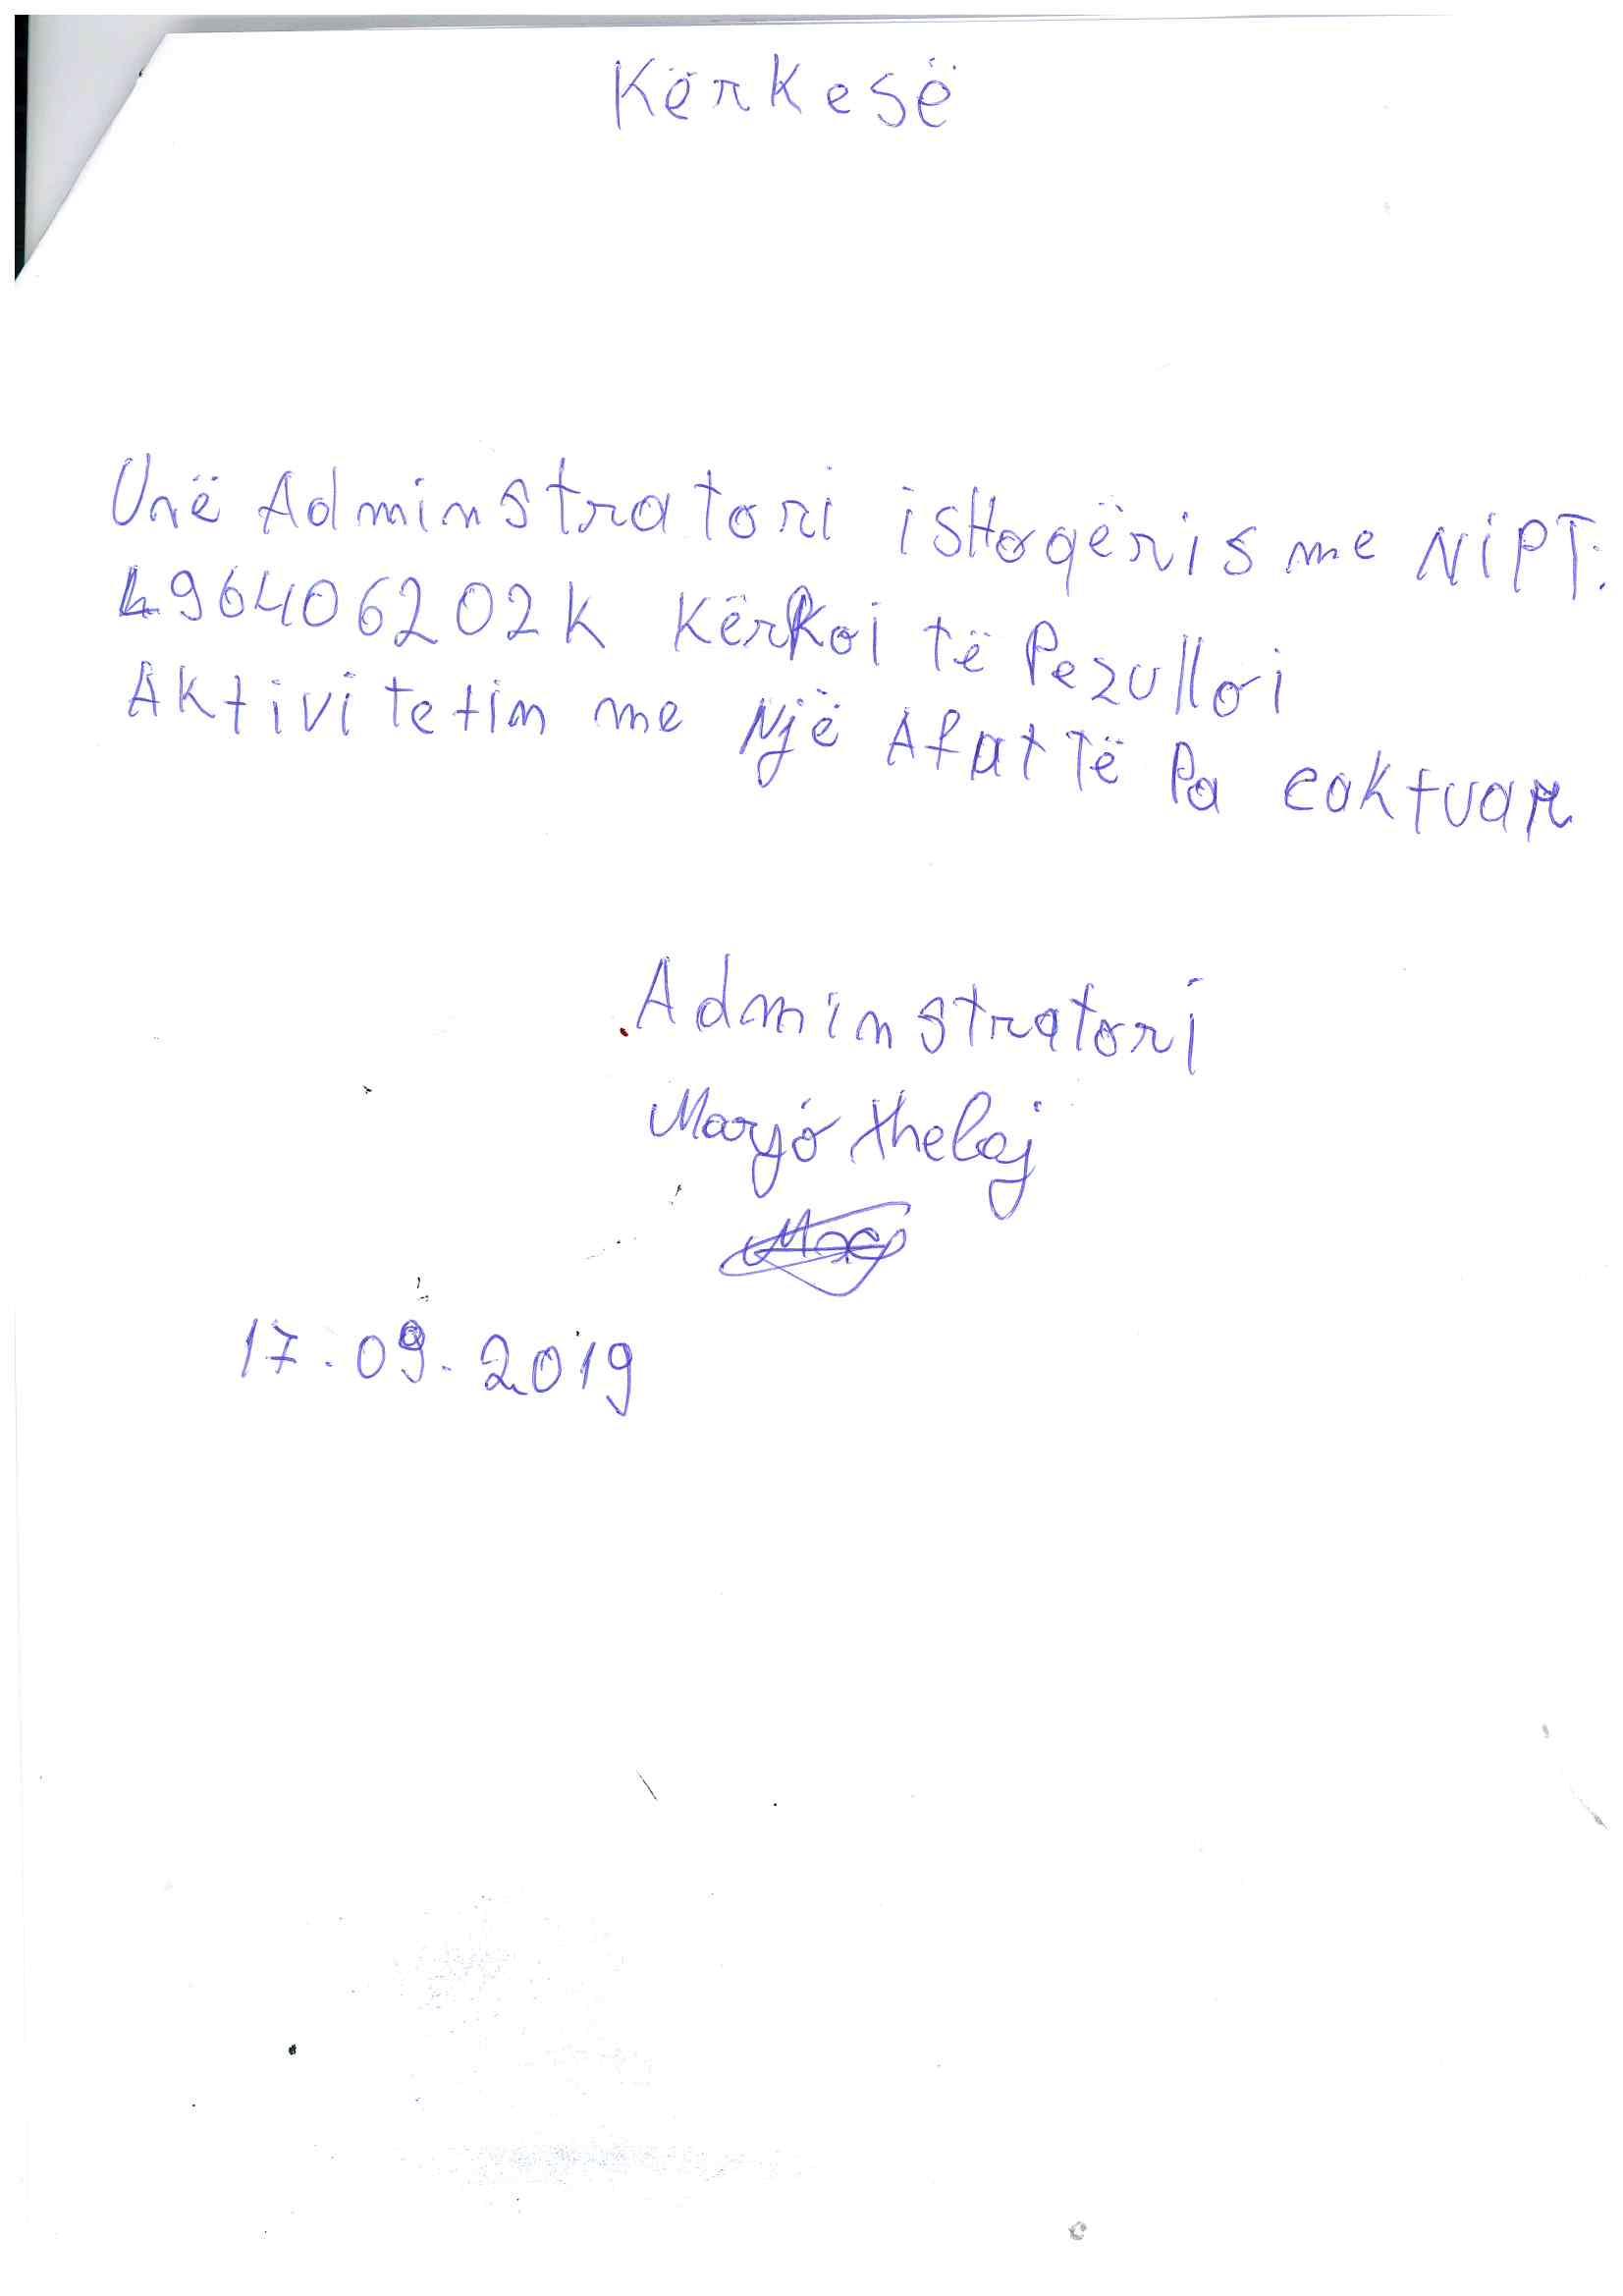 Kërkesë
Unë Adminstratori i shoqëris me NiPT:
L96406202K Kërkoi të Pezulloi
Aktivitetim me Një Afat Të Pa caktuar
Adminstratori
Marjo Xhelaj
17.09.2019